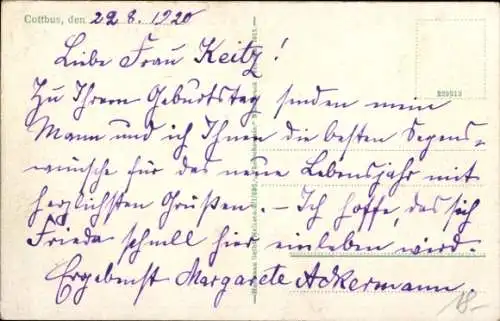 Cottbus, den 22 8. 1920
Liebe Frau Keitz!
Zu Ihrem Geburtstag senden mein
Mann und ich Ihnen die besten Segens-
wünsche für das neue Lebensjahr mit
herzlichsten Grüßen. – Ich hoffe, das sich
Frieda schnell hier einleben wird.
Ergebenst Margarete Ackermann.
18.-